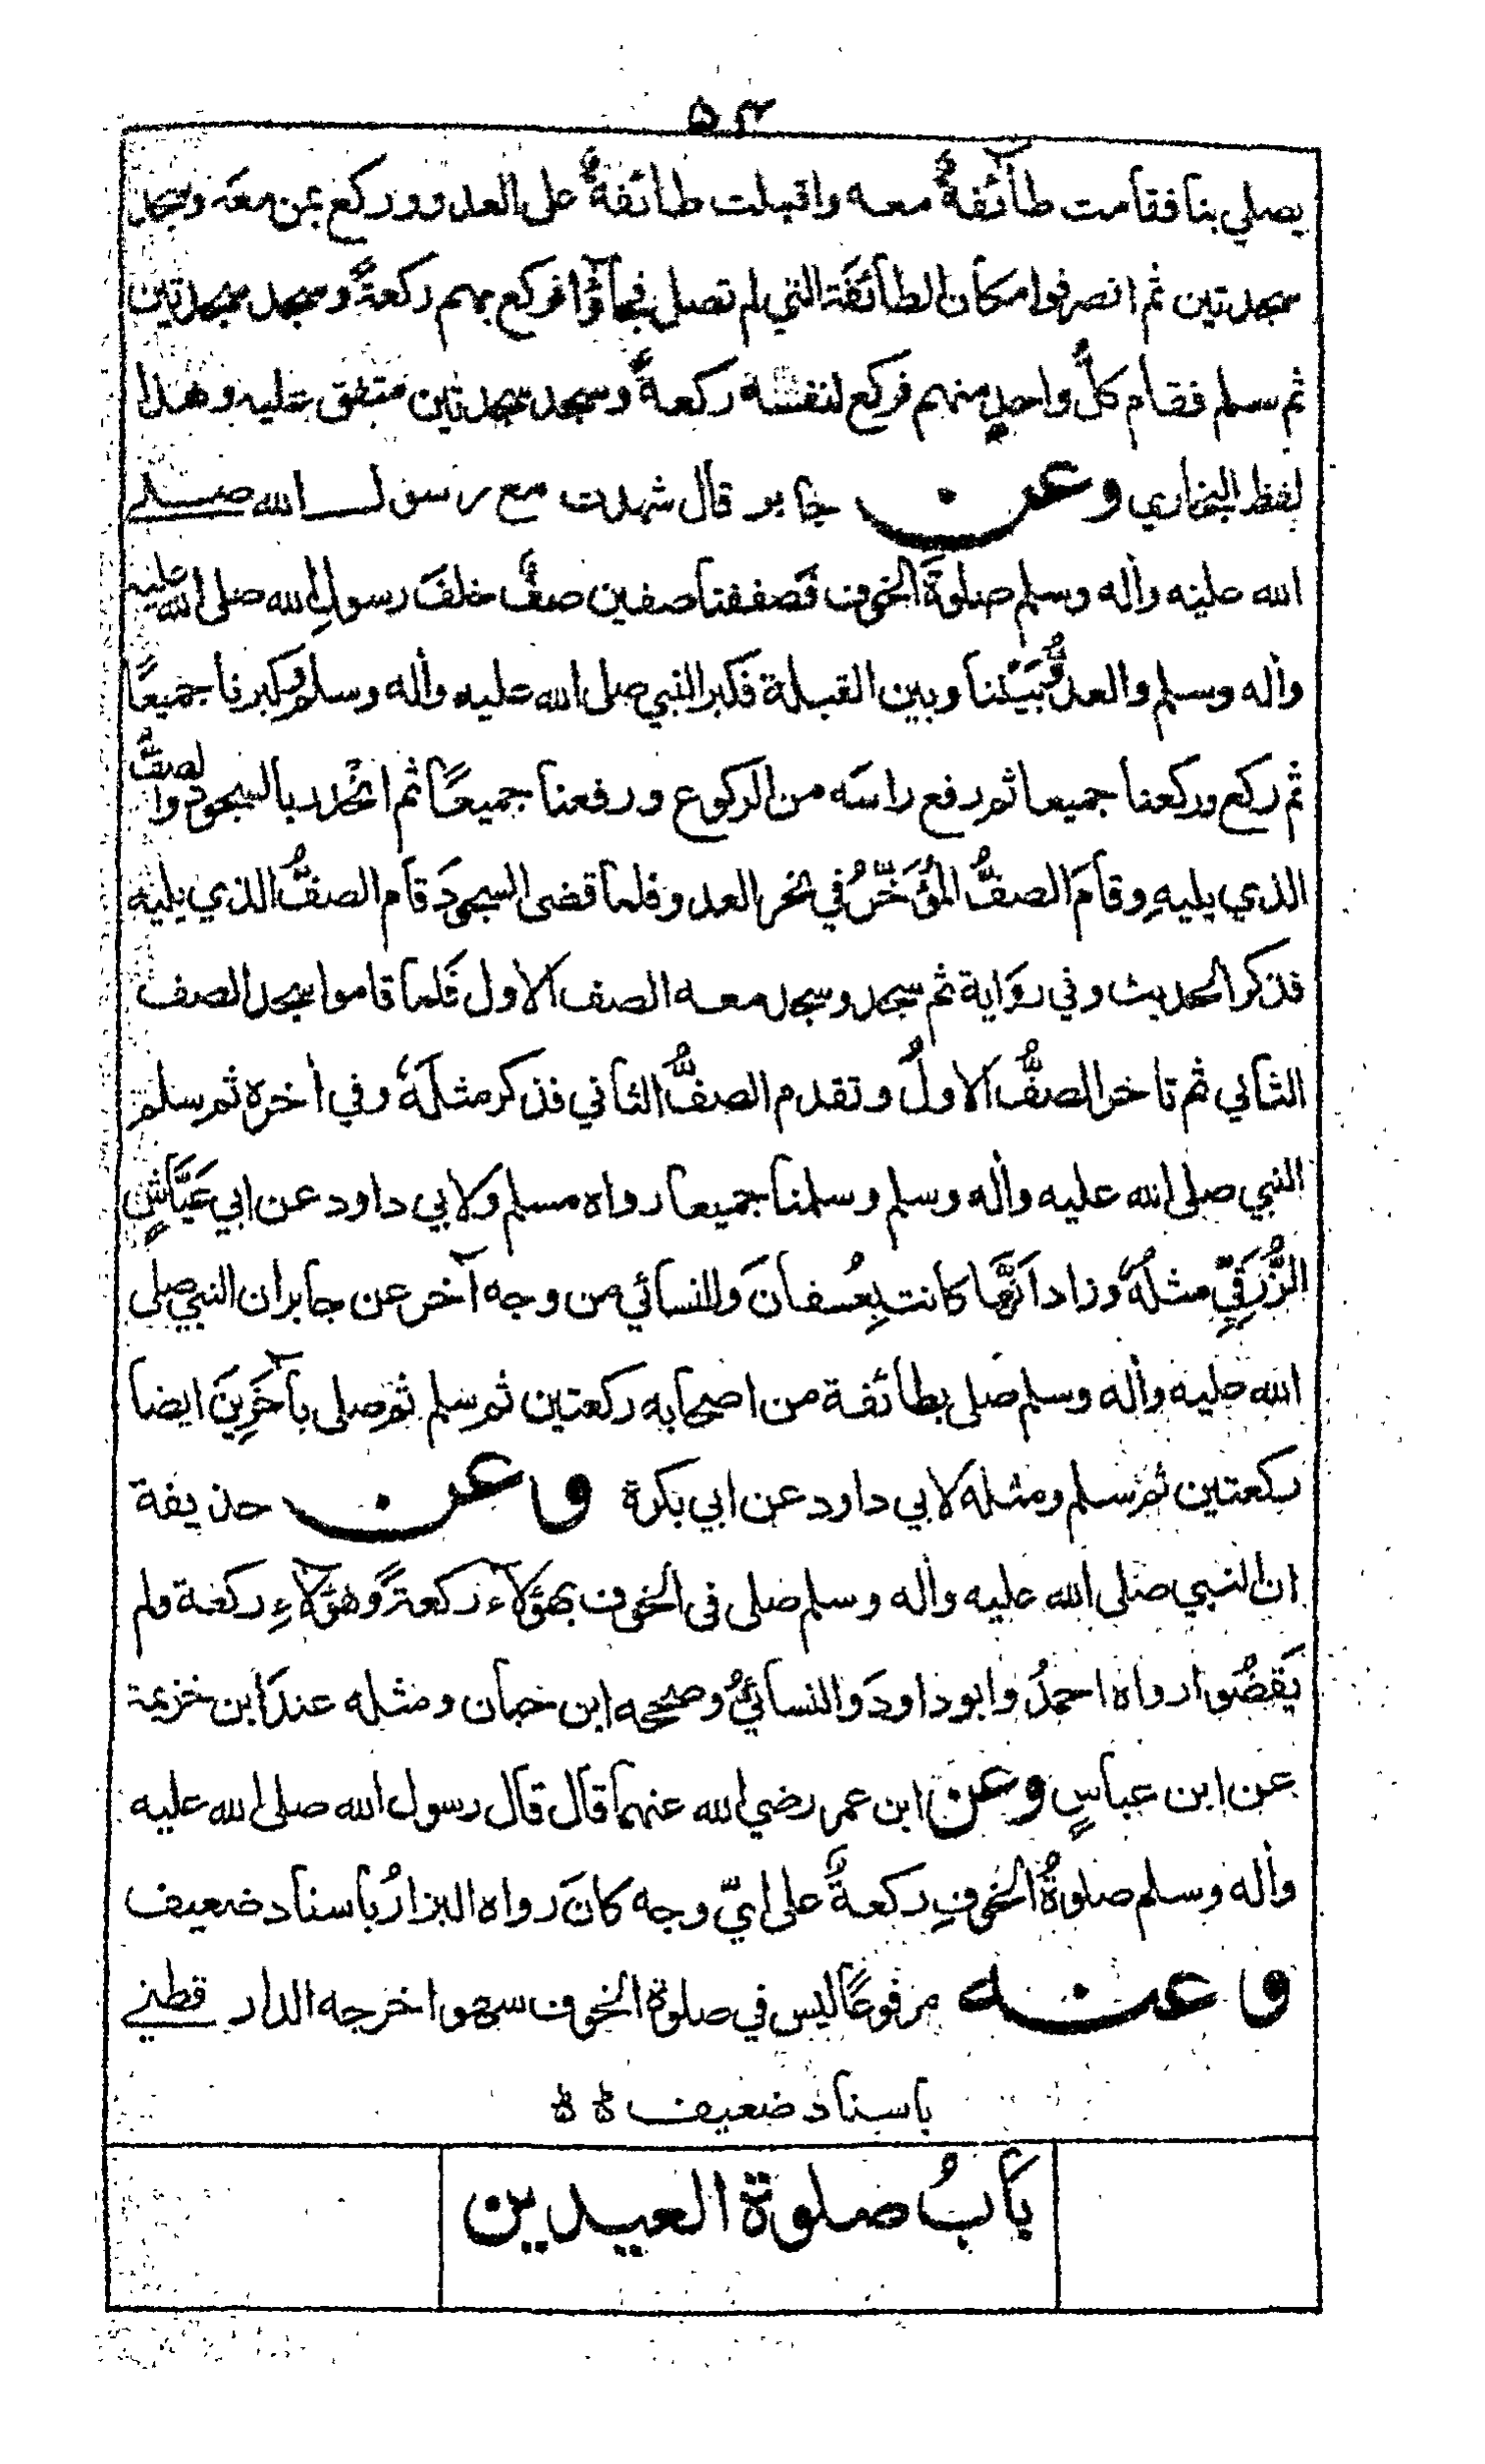 ۵۳
يصلي بنا فقامت طآئفةٌ معه واقبلت طائفةٌ على العدو وركع بمن معَه وسجد
سجدتين ثم انصرفوا مكان الطائفَة التي لم تصل فجآؤا فركع بهم ركعةً وسجد سجدتين
ثم سلم فقام كلُّ واحدٍ منهم فركع لنفسه ركعةً وسجد سجدتين متفق عليه وهذا
لفظ البخاري وعن جابر قال شهدت مع رسول الله صلے
الله عليه واٰله وسلم صلوةَ الخوف فَصففنا صفين صفٌّ خلفَ رسولِ الله صلى الله عليه
واٰله وسلم والعدوُّ بَيْننا وبين القبلة فكبر النبي صلى الله عليه واٰله وسلم وكبرنا جميعًا
ثم ركع وركعنا جميعا ثم رفع راسَه من الركوع ورفعنا جميعًا ثم انحْدر بالسجود والصفُّ
الذي يليهِ وقامَ الصفُّ المُؤَخّرُ في نحر العدو فلما قضى السجودَ قام الصفُّ الذي يليه
فذكر الحديث وفي روَاية ثم سجد وسجد معه الصف الاول فَلما قاموا سجد الصف
الثاني ثم تاخر الصفُّ الاولُ وتقدم الصفُّ الثاني فذكر مثلَهُ وفي اٰخره ثم سلم
النبي صلى الله عليه واٰله وسلم وسلمنا جميعا رواه مسلم ولابي داود عن ابي عَيَّاشٍ
الزُّرَقِيّ مثلَهُ وزاد اَنَّها كانت بِعُسفانَ وللنسائي من وجه آخر عن جابر ان النبي صلى
الله عليه واٰله وسلم صلى بطائفة من اصحابه ركعتين ثم سلم ثم صلى بآخَرِينَ ايضا
ركعتين ثم سلم ومثله لابي داود عن ابي بكرة وعن حذيفة
ان النبي صلى الله عليه واٰله وسلم صلى في الخوف بهؤلآء ركعةً وهؤلآءِ ركعة ولم
يَقضُوا رواه احمدُ وابو داودَ والنسائيُّ وصححه ابن حبان ومثله عندَ ابن خزيمة
عن ابن عباسٍ وعن ابن عمر رضي الله عنهما قال قال رسول الله صلى الله عليه
واٰله وسلم صلوةُ الخوفِ ركعةٌ على ايّ وجه كانَ رواه البزارُ باسناد ضعيف
وعنه مرفوعًا ليس في صلوة الخوف سهو اخرجه الدار قطنے
باسناد ضعيف ۃ ۃ
بابُ صلوة العيدين